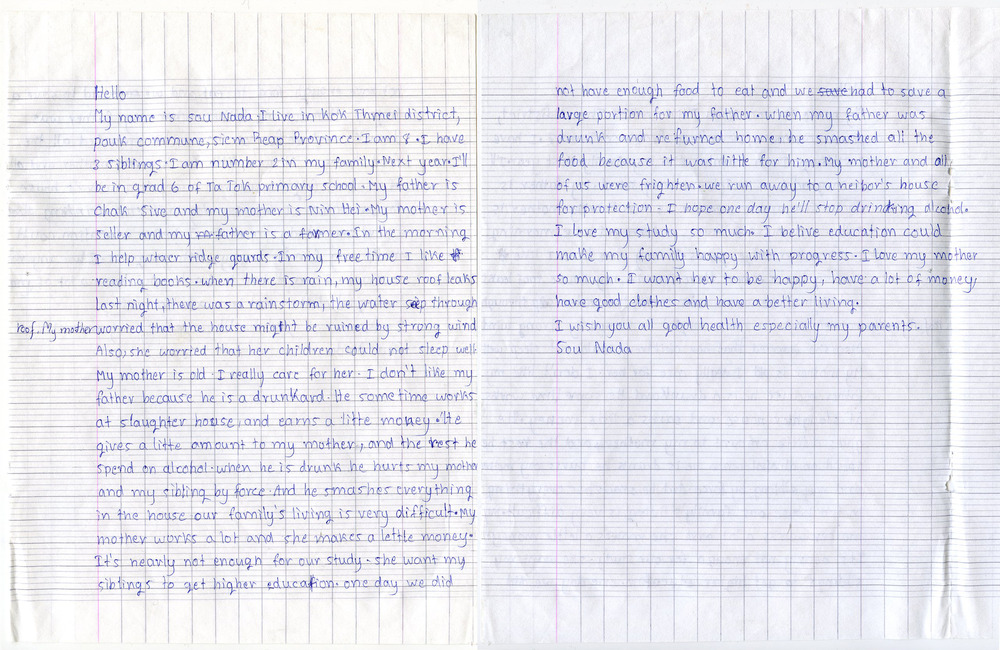 Hello
My name is sou Nada. I live in Kok Thmei district,
pouk commune, siem Reap Province. I am 8. I have
3 siblings. I am number 2 in my family. Next year. I'll
be in grad 6 of Ta Tok primary school. My father is
Chak Sive and my mother is Nin Hei. My mother is
seller and my father is a farmer. In the morning
I help wtaer ridge gourds. In my free time I like
reading books. when there is rain, my house roof leaks
last night, there was a rainstorm, the water seep through
roof. My mother worried that the house might be ruined by strong wind
Also, she worried that her children could not sleep well.
My mother is old. I really care for her. I don't like my
father because he is a drunkard. He some time works
at slaughter house, and earns a litte money. He
gives a litte amount to my mother, and the rest he
spend on alcohol. when he is drunk he hurts my mothe
and my sibling by force. And he smashes everything
in the house our family's living is very difficult. My
mother works a lot and she makes a lettle money.
It's nearly not enough for our study. she want my
siblings to get higher education. one day we did
not have enough food to eat and we save had to save a
large portion for my father. when my father was
drunk and returned home, he smashed all the
food because it was litte for him. My mother and all
of us were frighten. we run away to a neibor's house
for protection. I hope one day he'll stop drinking alcohol.
I love my study so much. I belive education could
make my family happy with progress. I love my mother
so much. I want her to be happy, have a lot of money,
have good clothes and have a better living.
I wish you all good health especially my parents.
Sou Nada